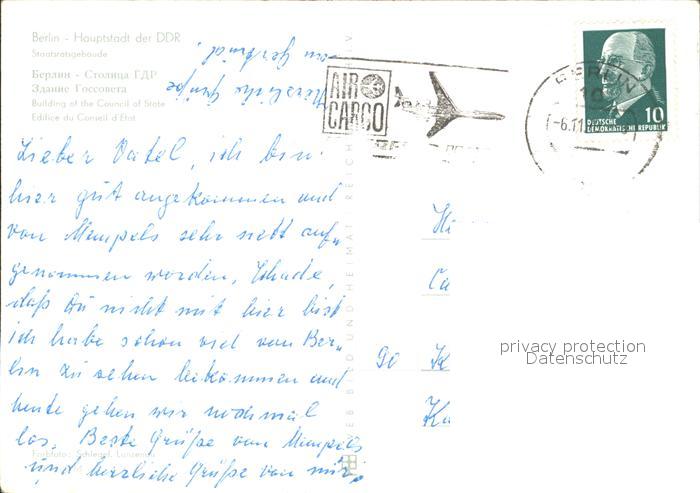 Berlin - Hauptstadt der DDR
Staatsratsgebäude
Берлин - Столица ГДР
Здание Госсовета
Building of the Council of State
Edifice du Conseil d'Etat
Herzliche Grüße
von
AIR
CARGO
BERLIN
10
-6.11
10
DEUTSCHE
DEMOKRATISCHE REPUBLIK
Lieber Vatel, ich bin
hier gut angekommen und
von Mempels sehr nett auf-
genommen worden, Schade,
daß Du nicht mit hier bist
ich habe schon viel von Ber-
lin zu sehen bekommen und
heute gehen wir nochmal
los. Beste Grüße von Mempels
und herzliche Grüße von mir.
Farbfoto: Schlegel, Lunzenau
BILD UND HEIMAT REICH
V
Hi
Ca
90 K
Ka
privacy protection
Datenschutz